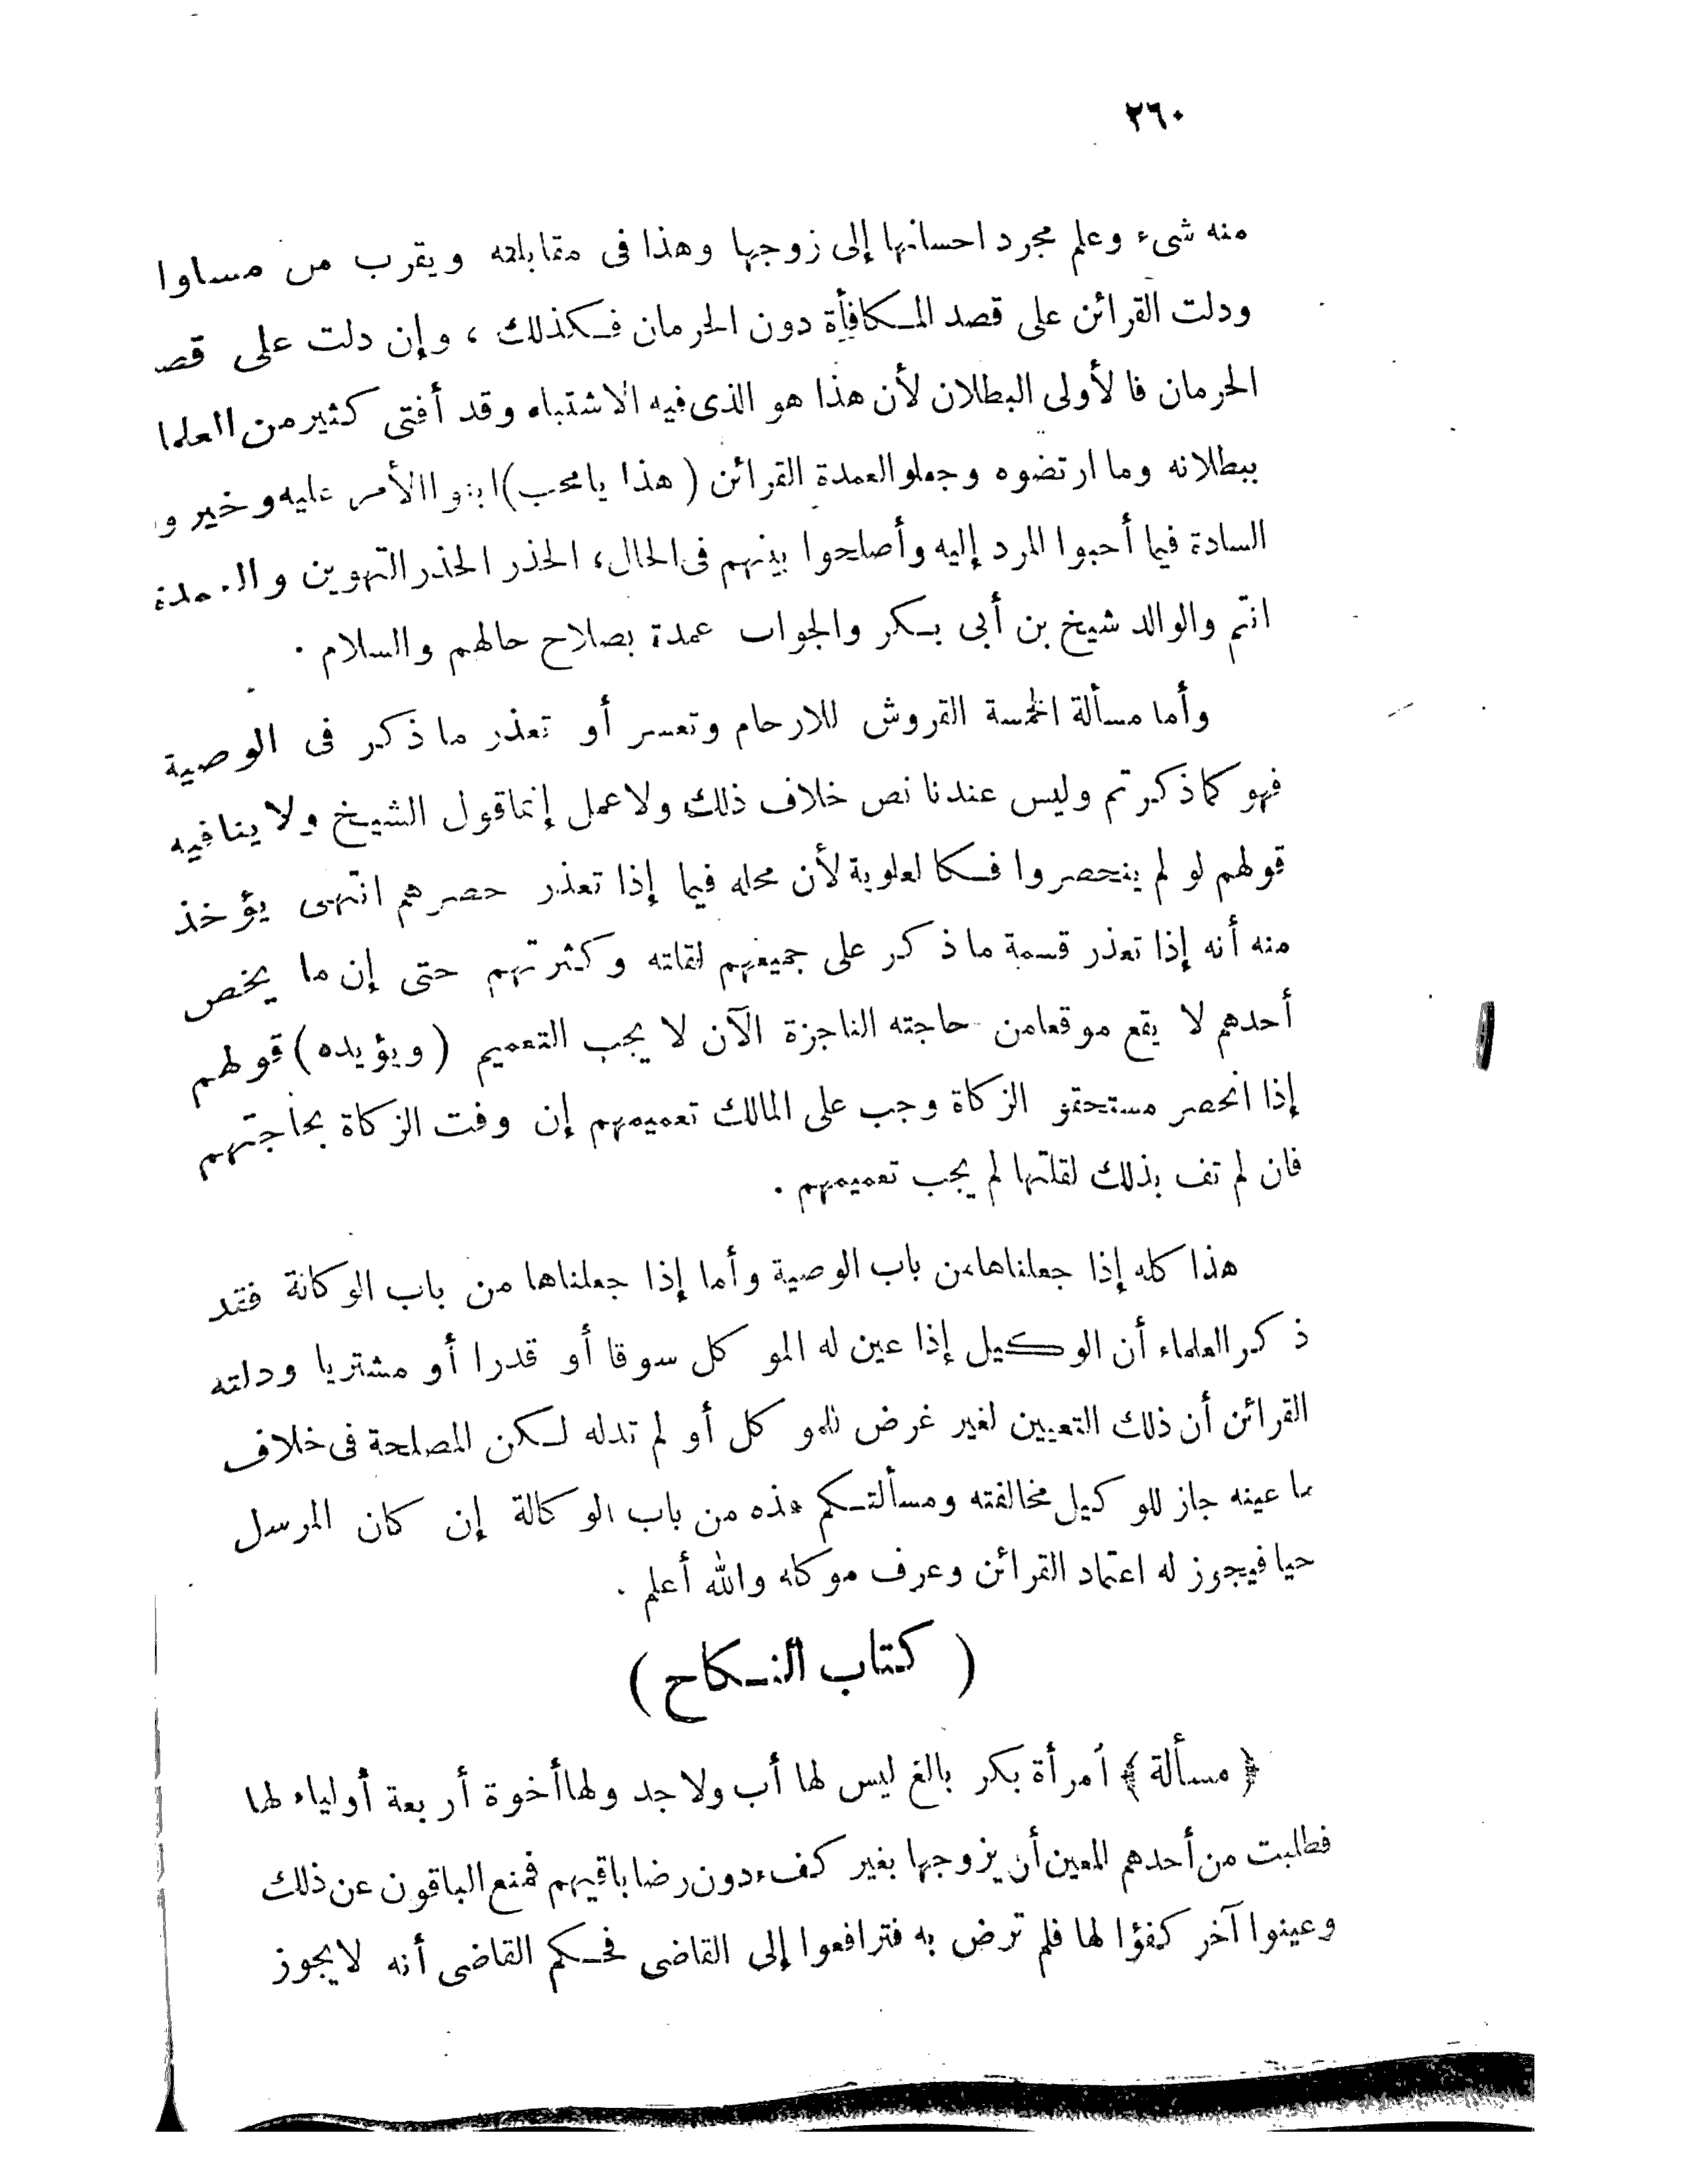 ٢٦٠
منه شىء وعلم مجرد احسانها إلى زوجها وهذا فى مقابلته ويقرب من مساوا
ودلت القرائن على قصد المكافأة دون الحرمان فكذلك ، وإن دلت على قص
الحرمان فالأولى البطلان لأن هذا هو الذى فيه الاشتباه وقد أفتى كثير من العلما
ببطلانه وما ارتضوه وجعلو العمدة القرائن ( هذا يا محب) ابنوا الأمر عليه وخير و
السادة فيما أحبوا المرد إليه وأصلحوا بينهم فى الحال، الحذر الحذر التهوين
انتم والوالد شيخ بن أبى بكر والجواب عمدة بصلاح حالهم والسلام .
وأما مسألة الخمسة القروش للارحام وتعسر أو تعذر ما ذكر فى الوصية
فهو كما ذكرتم وليس عندنا نص خلاف ذلك ولا عمل إنما قول الشيخ ولا ينافيه
قولهم لو لم ينحصروا فكالعلوية لأن محله فيما إذا تعذر حصرهم انتهى يؤخذ
منه أنه إذا تعذر قسمة ما ذكر على جميعهم لقلته وكثرتهم حتى إن ما يخص
أحدهم لا يقع موقعا من حاجته الناجزة الآن لا يجب التعميم ( ويؤيده ) قولهم
إذا انحصر مستحقو الزكاة وجب على المالك تعميمهم إن وفت الزكاة بحاجتهم
فان لم تف بذلك لقلتها لم يجب تعميمهم .
هذا كله إذا جعلناها من باب الوصية وأما إذا جعلناها من باب الوكالة فقد
ذكر العلماء أن الوكيل إذا عين له الموكل سوقا أو قدرا أو مشتريا ودلته
القرائن أن ذلك التعيين لغير غرض للموكل أو لم تدله لكن المصلحة فى خلاف
ما عينه جاز للوكيل مخالفته ومسألتكم هذه من باب الوكالة إن كان المرسل
حيا فيجوز له اعتماد القرائن وعرف موكله والله أعلم .
( كتاب النكاح )
﴿ مسألة ﴾ أمرأة بكر بالغ ليس لها أب ولا جد ولها أخوة أربعة أولياء لها
فطلبت من أحدهم المعين أن يزوجها بغير كفء دون رضا باقيهم فمنع الباقون عن ذلك
وعينوا آخر كفؤا لها فلم ترض به فترافعوا إلى القاضى فحكم القاضى أنه لا يجوز